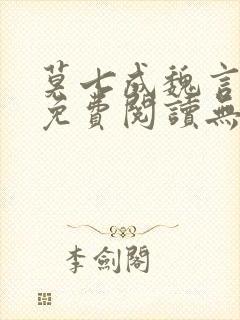 莫七成魏言
免費閱讀無
李劍閣